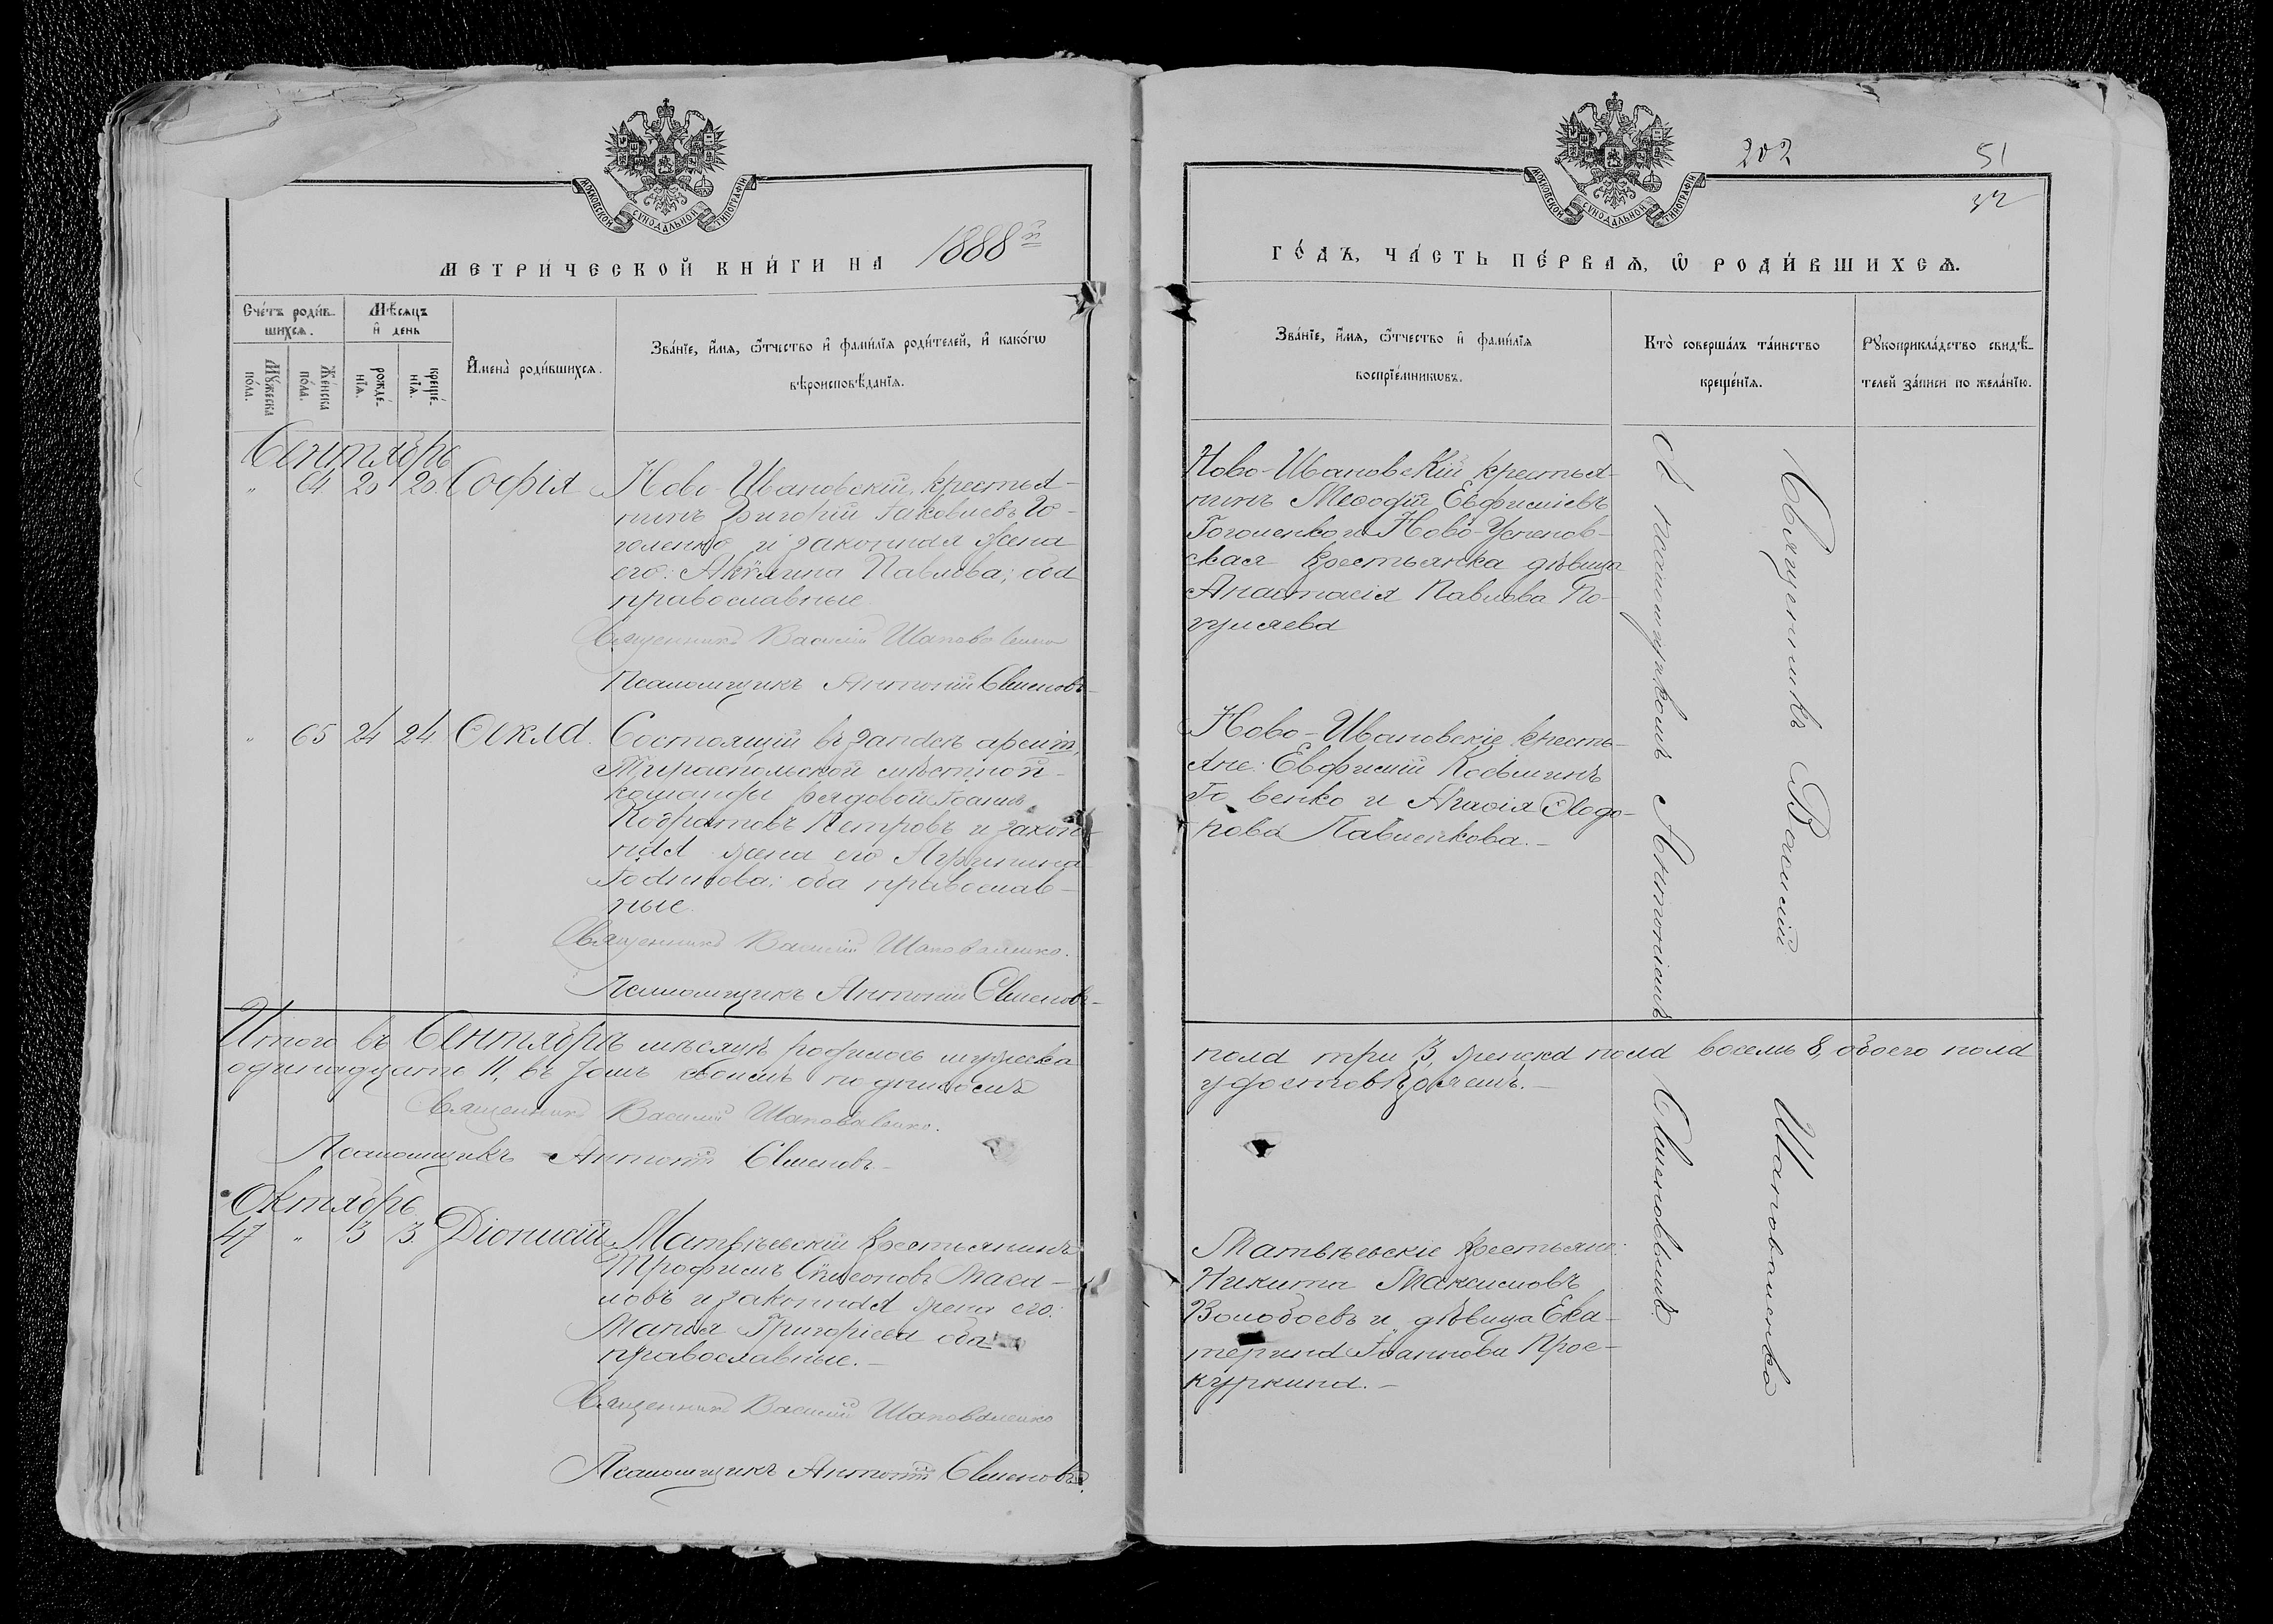 МОСКОВСКОЙ СѴНОДАЛЬНОЙ ТИПОГРАФІИ
МЕТРИ́ЧЕСКОЙ КНИ́ГИ НА 1888й
Сче́тъ роди́в-
шихсѧ.
Мѣ́сѧцъ
и҆ день
Мꙋ́жеска
по́ла.
Же́нска
по́ла.
рожде́-
нїѧ.
креще́-
нїѧ.
И҆мена̀ роди́вшихсѧ.
Зва́нїе, и҆́мѧ, ѿ́чество и҆ фами́лїѧ роди́телей, и҆ како́гѡ
вѣроисповѣ́данїѧ.
Сентябрь
" 64 20 20. Софія
Ново-Ивановскій крестья-
нинъ Григорій Іаковлевъ Го-
голенко и законная жена
его: Акулина Павлова; оба
православные
Священникъ Василій Шаповаленко
Псаломщикъ Антоній Семеновъ
" 65 24 24 Ѳекла.
Состоящій въ запасѣ арміи,
Тираспольской мѣстной
команды рядовой Іоаннъ
Кодратовъ Петровъ и закон-
ная жена его Агриппина
оба православ-
ные.
Священникъ Василій Шаповаленко.
Псаломщикъ Антоній Семеновъ
Итого въ Сентябрѣ мѣсяцѣ родилось мужеска
одинадцать 11, въ томъ своимъ подписомъ
Священникъ Василій Шаповаленко.
Псаломщикъ Антоній Семеновъ
Октябрь
47 " 3 3. Діонисій
Матвѣевскій крестьянинъ
Трофимъ Симеоновъ Масл-
ловъ и законная жена его:
Марія Григоріева оба
православные.
Священникъ Василій Шаповаленко
Псаломщикъ Антоній Семеновъ.
202 51
МОСКОВСКОЙ СѴНОДАЛЬНОЙ ТИПОГРАФІИ
ГО́ДЪ, ЧА́СТЬ ПЕ́РВАѦ, Ѡ҆ РОДИ́ВШИХСѦ.
Зва́нїе, и҆́мѧ, ѿ́чество и҆ фами́лїѧ
воспрїе́мникѡвъ.
Кто̀ соверша́лъ та́инство
креще́нїѧ.
Рꙋкоприкла́дство свидѣ́-
телей за́писи по жела́нїю.
Ново-Ивановскій крестья-
нинъ Меѳодій Евфиміевъ
Гоголенко и Ново-Успенов-
ская крестьянка дѣвица
Анастасія Павлова По-
гуляева
Ново-Ивановскіе кресть-
яне: Евфимій Косьминъ
и Агаѳія
Павленкова.
Священникъ Василій Шаповаленко
съ псаломщикомъ Антоніемъ Семеновымъ
пола три 3, женска пола восемь 8, обоего пола
удостовѣряемъ.
Матвѣевскіе крестьяне:
Никита Максимовъ
Волобоевъ и дѣвица Ека-
терина Іоаннова Прос-
куркина.